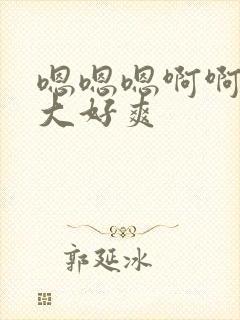 嗯嗯嗯啊啊
大好爽
郭延冰